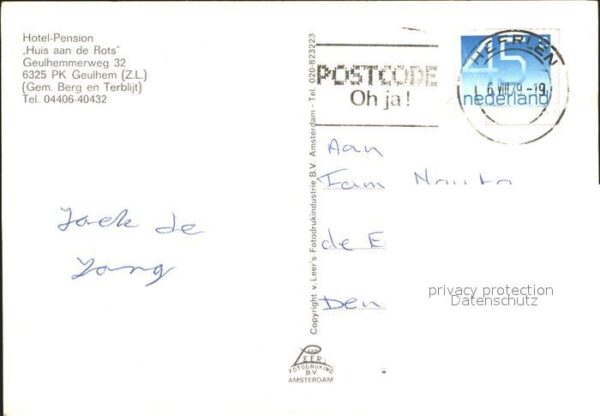 Hotel-Pension
„Huis aan de Rots"
Geulhemmerweg 32
6325 PK Geulhem (Z.L.)
(Gem. Berg en Terblijt)
Tel. 04406-40432
POSTCODE
Oh ja!
HEERLEN
6 VIII 79 -19
45
nederland
Copyright v. Leer's Fotodrukindustrie B.V. Amsterdam - Tel. 020-823223
Aan
Fam Nauta
de E
Den
Jack de
Jong
privacy protection
Datenschutz
VAN
LEER
FOTODRUKIND
B.V.
AMSTERDAM